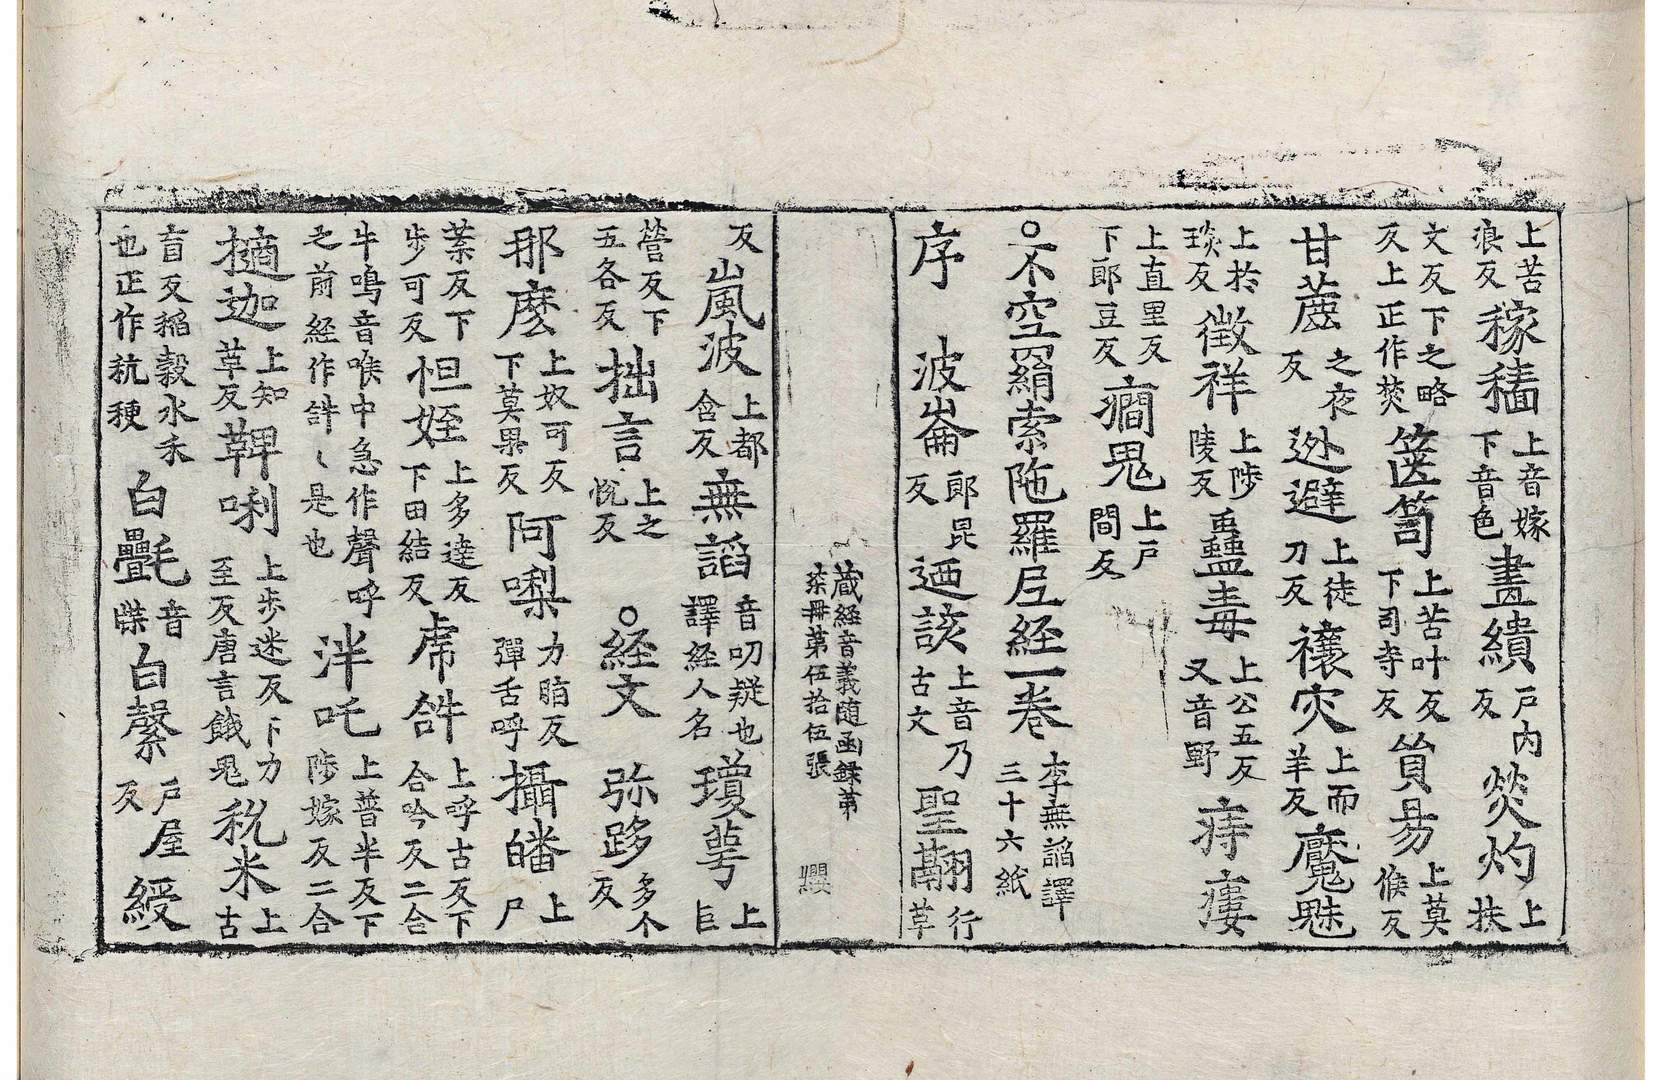 上苦浪反稼穡上音嫁下音色畫繢戶内反燚灼上扶
文反下之略反上正作焚篋笥上苦叶反下司寺反貿易上莫候反
甘蔗之夜反迯避上徒刀反禳灾上而羊反魘魅
上於琰反徴祥上陟陵反蠱毒上公五反又音野痔瘻
上直里反下郎豆反癎鬼上戸間反
○不空羂索陁羅尼経一卷李無諂譯三十六紙
序 波崙郎昆反迺該上音乃古文聖翮行草
藏経音義隨函録第柒冊第伍拾伍張
反嵐波上都含反無謟音叨疑也譯経人名瓊萼上巨
營反下五各反拙言上之悦反 ○経文 弥跢多个反
那麽上奴可反下莫果反阿㗚力脂反彈舌呼攝皤上尸
葉反下步可反怛姪上多達反下田結反虖𤙖上呼古反下合吟反二合
牛鳴音喉中急作聲呼之前経作𤙖〻是也泮吒上普半反下陟嫁反二合
擿迦上知革反鞞唎上步迷反下力至反唐言餓鬼秔米上古
盲反稲穀水禾也正作秔粳白㲲音牒白縠戸屋反綬